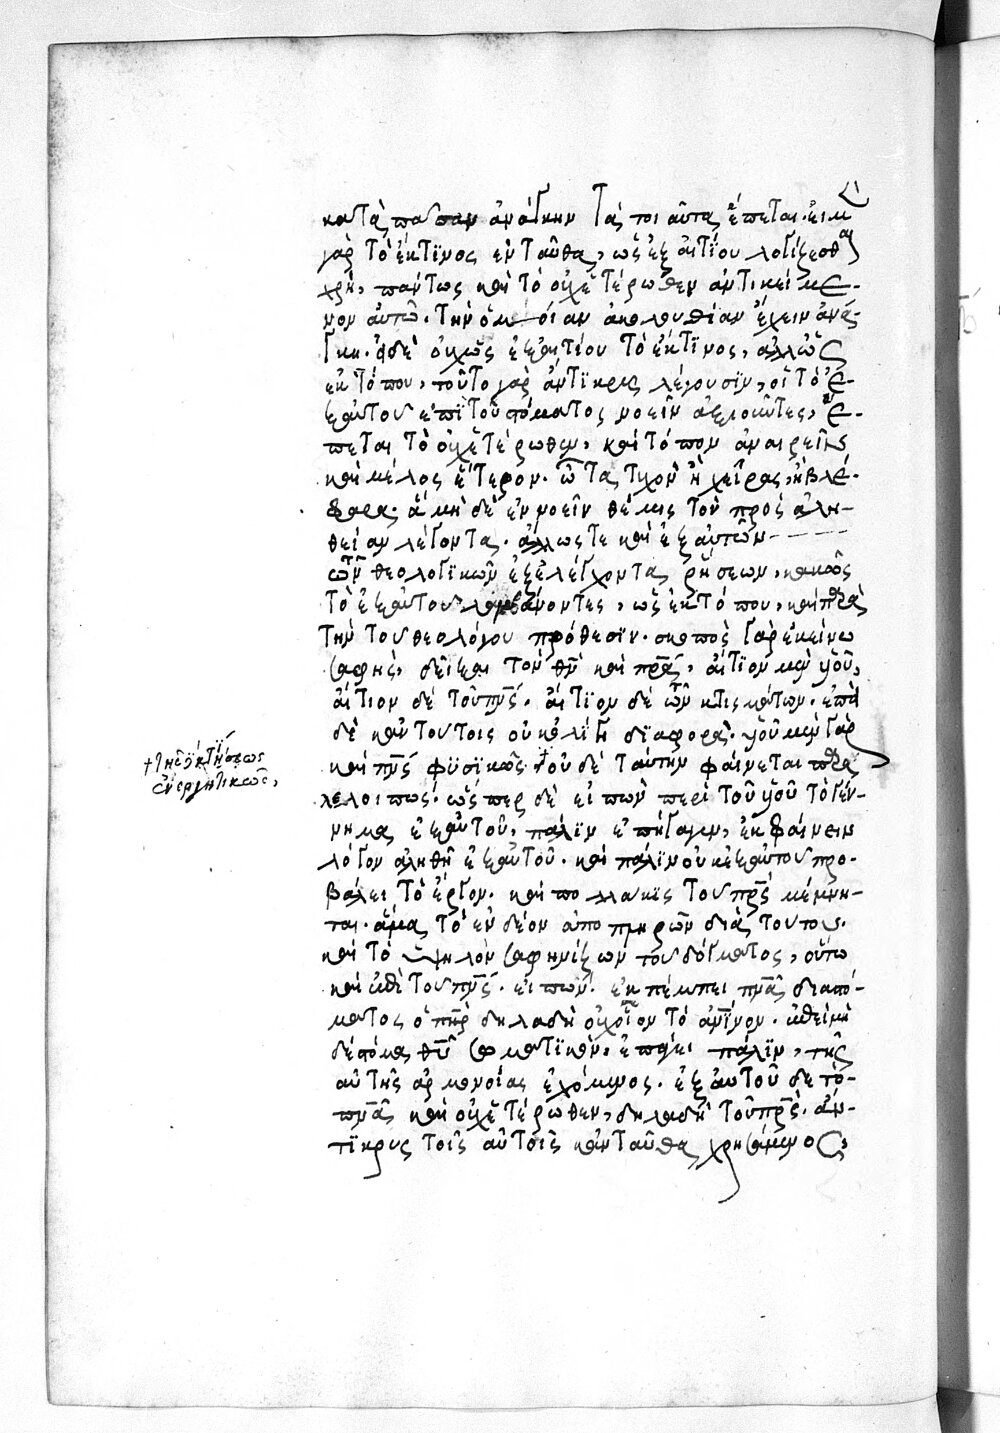 κατὰ πᾶσαν ἀνάγκην ταῖς τοι αὗτα ἕπεται. εἰ μ
γὰρ τὸ ἔκτινος ἐνταῦθα, ὡς ἐξ αἰτίου λογίζεσθαι
χρὴ, πάντως καὶ τὸ οὐχ ἑτέρωθεν ἀντικείμε-
νον αὐτῶ. τὴν ὁμοίαν ἀκολουθίαν ἔχειν ἀνάγ-
κη. εἰ δὲ οὐχ ὡς ἐξ αἰτίου τὸ ἔκτινος, ἀλλ' ὡς
ἐκ τόπου, τοῦτο γὰρ ἄντικρις λέγουσιν, οἱ τὸ ἐ-
ξ αὐτοῦ ἐπὶ τοῦ στόματος νοεῖν ἀξιοῦντες, ἕ-
πεται τὸ οὐχ ἑτέρωθεν, καὶ τόπον ἀναιρεῖν
καὶ μέλος ἕτερον. ὦτα τυχὸν ἢ χεῖρας, ἢ βλέ-
φαρα. ἃ μὴ δὲ ἐννοεῖν θέμις τὸν πρὸς ἀλή-
θειαν λέγοντα. ἄλλως τε καὶ ἐξ αὐτῶν
τῶν θεολογικῶν ἐξελέγχονται ῥήσεων, κακῶς
τὸ ἐξ αὐτοῦ λαμβάνοντες, ὡς ἐκ τόπου, καὶ παρὰ
τὴν τοῦ θεολόγου πρόθεσιν. σκοπὸς γὰρ ἐκείνω
σαφὴς, δεῖξαι τὸν θν καὶ πρα, αἴτιον μὲν υἱοῦ,
αἴτιον δὲ τοῦ πνς. αἴτιον δὲ τῶν κτισμάτων. ἐπεὶ
δὲ κἀν τούτοις οὐκ ὀλίγη διαφορὰ. υἱοῦ μὲν γὰρ
καὶ πνς φυσικῶς. † οὐδὲ ταύτην φαίνεται παρα
λελοιπώς. ὥσπερ δὲ εἰπὼν περὶ τοῦ υἱοῦ τὸ γέν-
νημα ἐξ αὐτοῦ, πάλιν ἐπήγαγεν, ἐκφαίνειν
λόγον ἀληθῆ ἐξ αὐτοῦ. καὶ πάλιν οὐκ ἐξ αὐτοῦ προ-
βάλει τὸ ἔργον. καὶ πολλάκις τοῦ πρς μέμνη-
ται. ἅμα τὸ ἐνδέον ἀποπληρῶν διὰ τούτου.
καὶ τὸ ὑψηλὸν σαφηνίζων τοῦ δόγματος, οὕτω
καὶ ἐπὶ τοῦ πνς. εἰπὼν. ἐκπέμπει πνα διὰ στό-
ματος ὁ πηρ δηλαδὴ οὐχ οἷον τὸ ἀνινον. ἐπεὶ μὴ
δὲ στόμα θυ σωματικὸν, ἐπάγει πάλιν, τῆς
αὐτῆς ἁρμονοίας ἐχόμενος. ἐξ αὐτοῦ δὲ τὸ-
πνα καὶ οὐχ ἑτέρωθεν, δηλαδὴ τοῦ πρς. ἄν-
τικρυς τοῖς αὐτοῖς κἀνταῦθα χρησάμενος,
† τῆς δὲ κτίσεως
ἐνεργητικῶς,